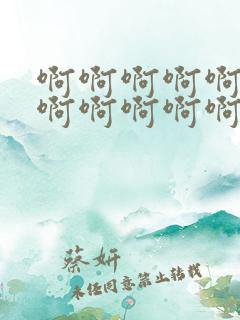 啊啊啊啊啊
啊啊啊啊啊
蔡妍
未经同意禁止转载